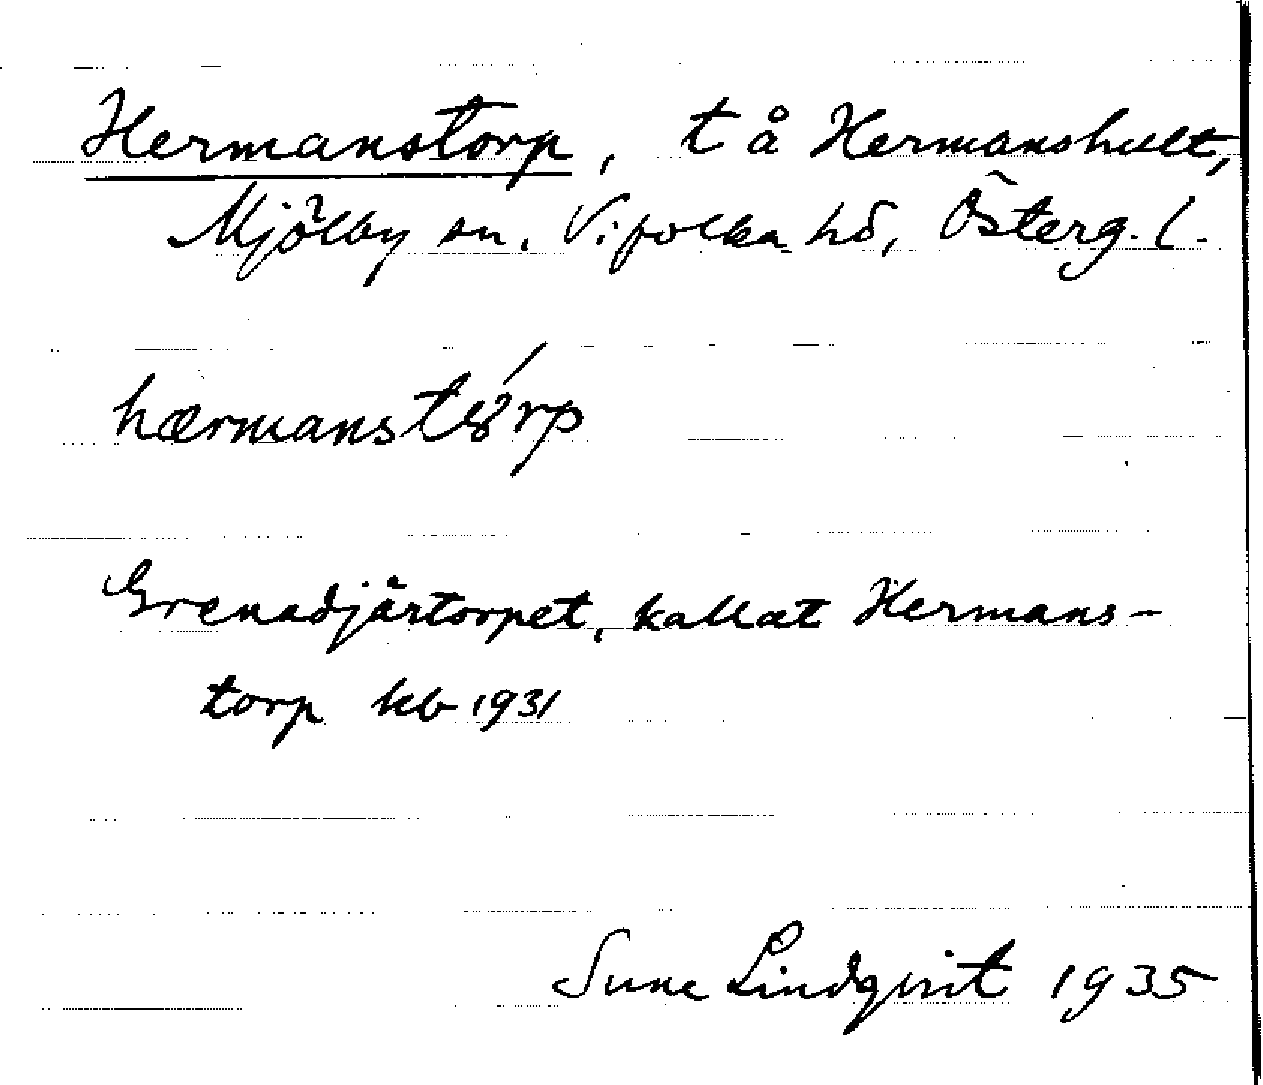 Hermanstorp, t å Hermanshult,
Mjölby sn. Vifolka hd, Österg. l.
hærmanstȣ́rp
Grenadjärtorpet, kallat Hermans-
torp kb 1931
Sune Lindqvist 1935